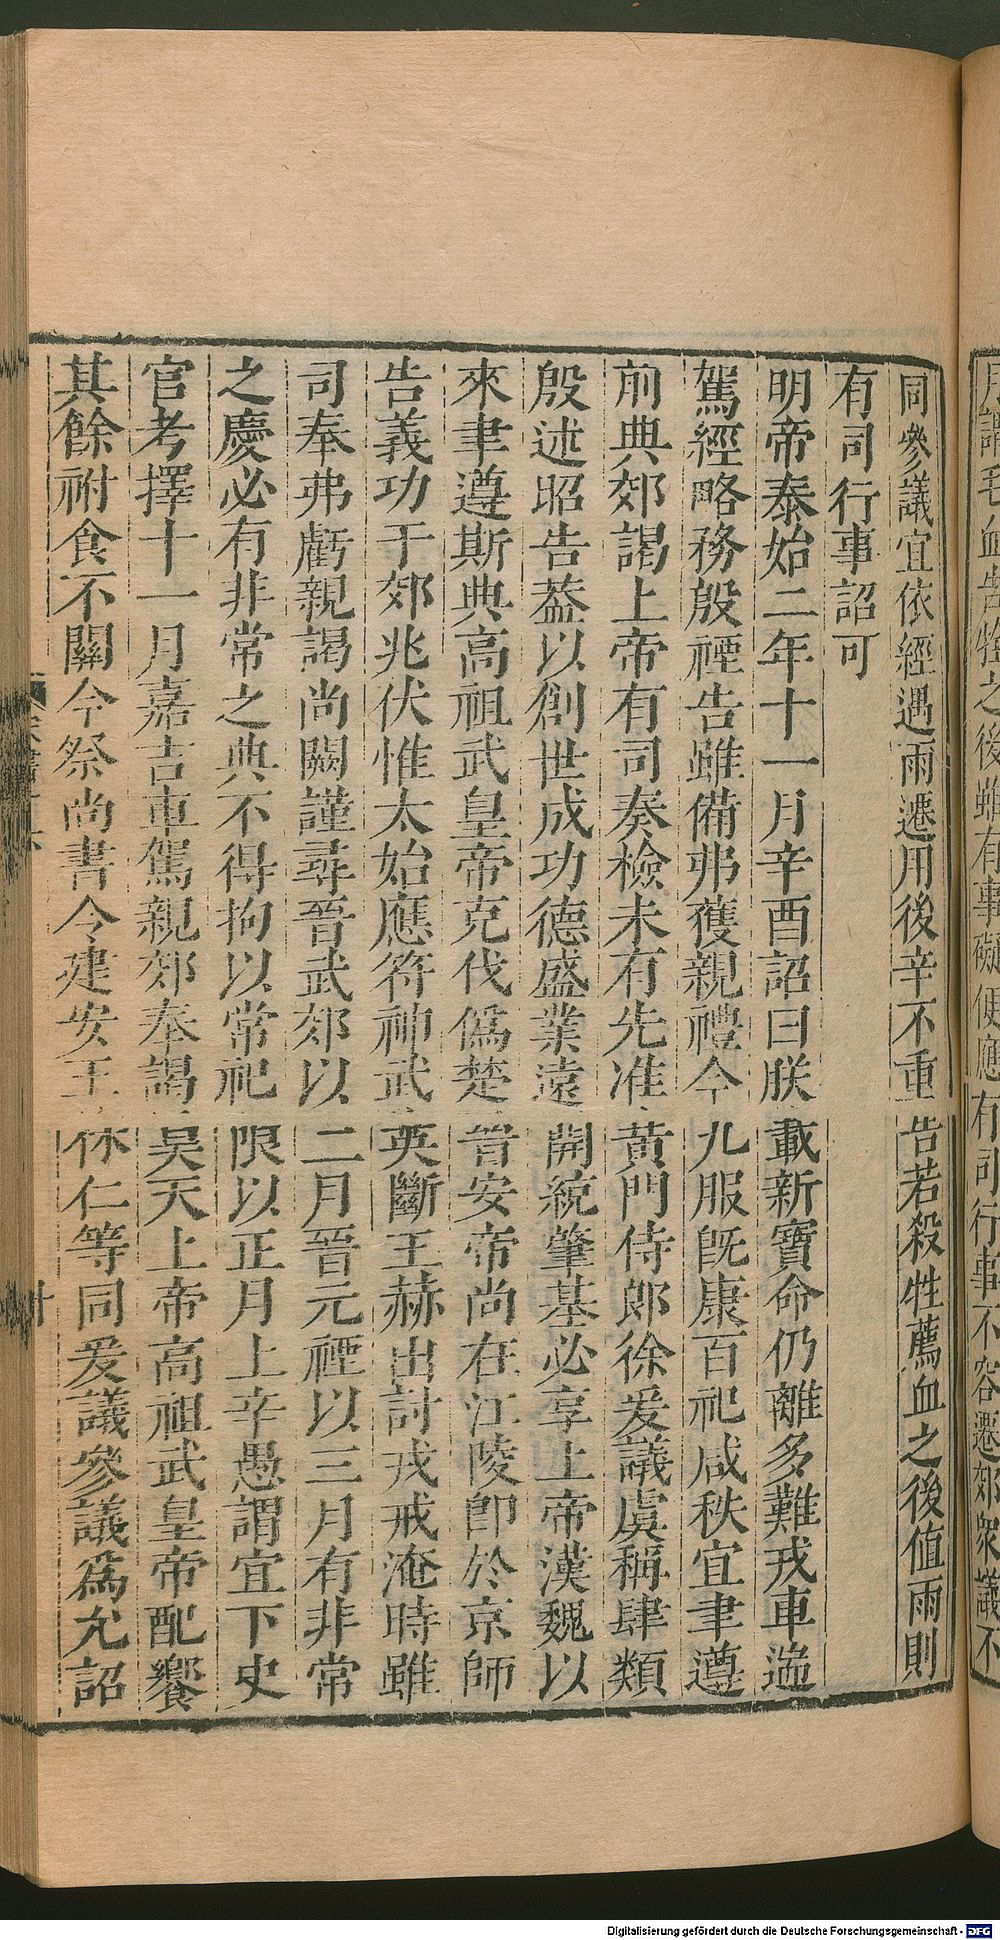 月謂毛血告牷之後雖有事礙便應有司行事不容遷郊衆議不
同參議宜依經遇雨遷用後辛不重告若殺牲薦血之後值雨則
有司行事詔可
明帝泰始二年十一月辛酉詔曰朕載新寶命仍離多難戎車遄
駕經略務殷禋告雖備弗獲親禮今九服旣康百祀咸秩宜聿遵
前典郊謁上帝有司奏檢未有先准黃門侍郎徐爰議虞稱肆類
殷述昭告葢以創世成功德盛業遠開統肇基必享上帝漢魏以
來聿遵斯典高祖武皇帝克伐僞楚晉安帝尚在江陵卽於京師
告義功于郊兆伏惟太始應符神武英斷王赫出討戎戒淹時雖
司奉弗虧親謁尚闕謹尋晉武郊以二月晉元禋以三月有非常
之慶必有非常之典不得拘以常祀限以正月上辛愚謂宜下史
官考擇十一月嘉吉車駕親郊奉謁昊天上帝高祖武皇帝配饗
其餘祔食不關今祭尚書令建安王休仁等同爰議參議爲允詔
Digitalisierung gefördert durch die Deutsche Forschungsgemeinschaft - DFG